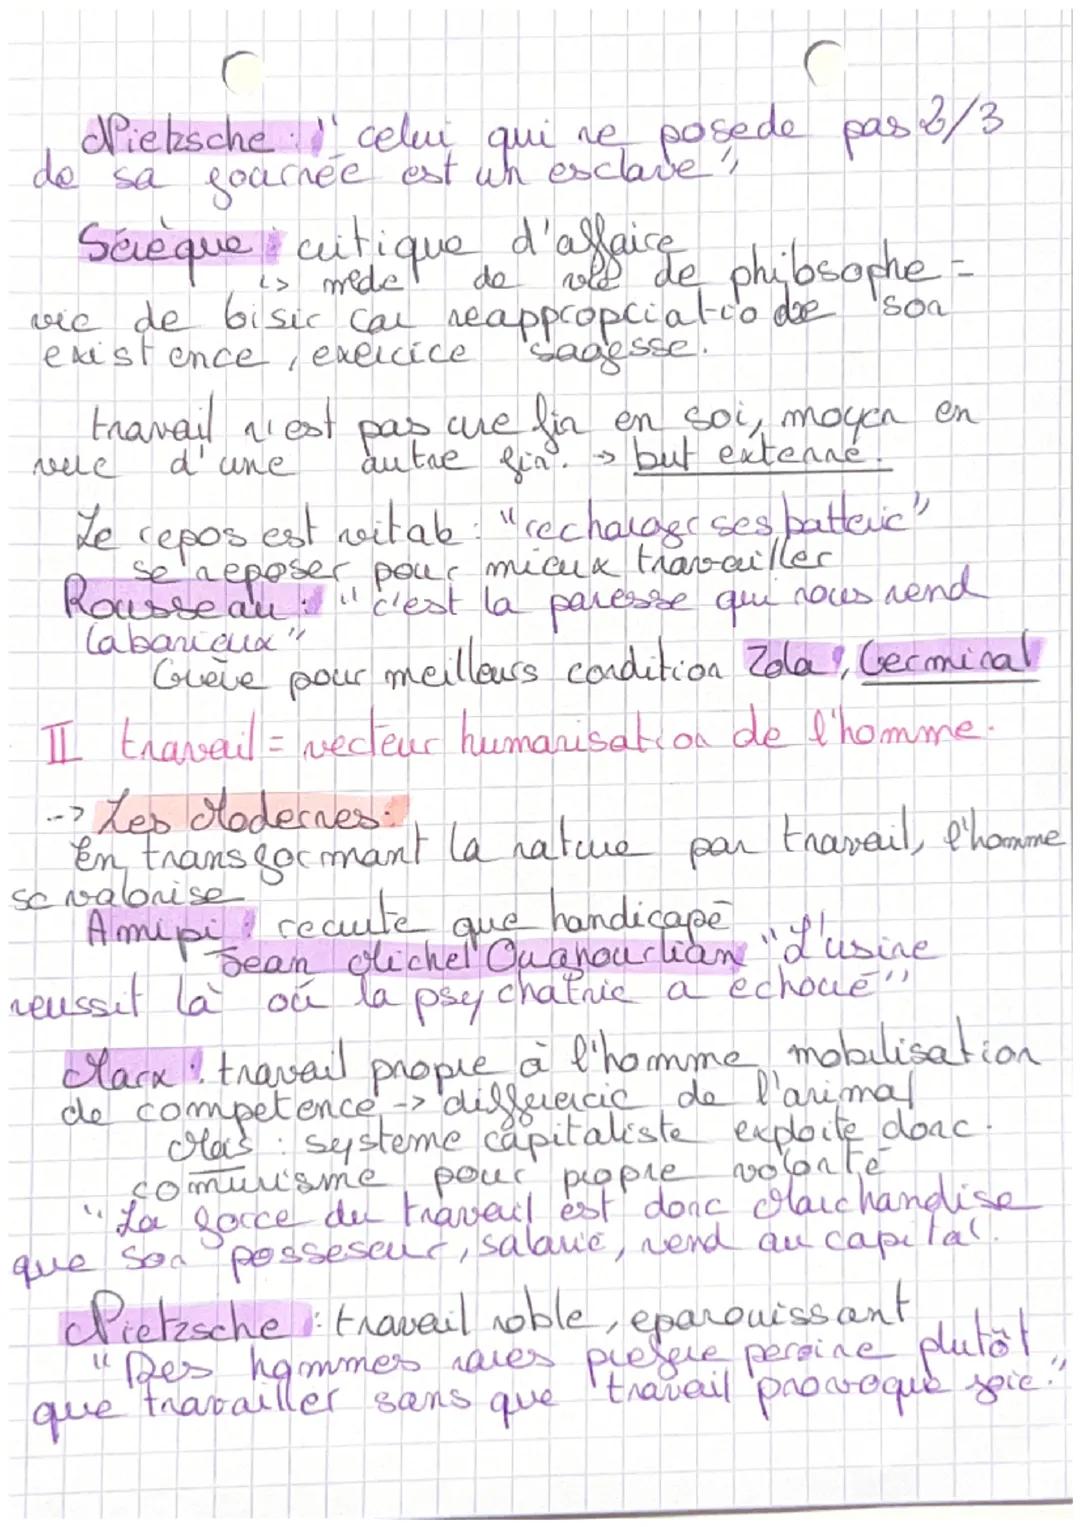 Nietzsche : "celui qui ne posede pas 2/3
de sa journée est un esclave",
Sénèque : critique d'affaire
↳ mede de vie de philosophe =
vie de loisir car reappropriatio de son
existence, exercice sagesse.
travail n'est pas une fin en soi, moyen en
vue d'une autre fin. → but externe.
Le repos est vitab : "recharger ses batterie"
se reposer pour mieux travailler
Rousseau : "c'est la paresse qui nous rend
labarieux"
Grève pour meilleurs condition Zola, Germinal
II travail = vecteur humanisation de l'homme.
--> Les Modernes :
En transformant la nature par travail, l'homme
se valorise
Amipi : recrute que handicapé
Jean Michel Oughourlian "L'usine
reussit là où la psychatrie a échoué"
Marx : travail propre à l'homme, mobilisation
de competence -> differencie de l'animal
Mais : systeme capitaliste exploite donc.
comunisme pour propre volonté
"La force du travail est donc Marchandise
que son posseseur, salarié, vend au capital.
Nietzsche : travail noble, epanouissant
"Des hommes rares prefere perire plutôt
que travailler sans que travail provoque joie."